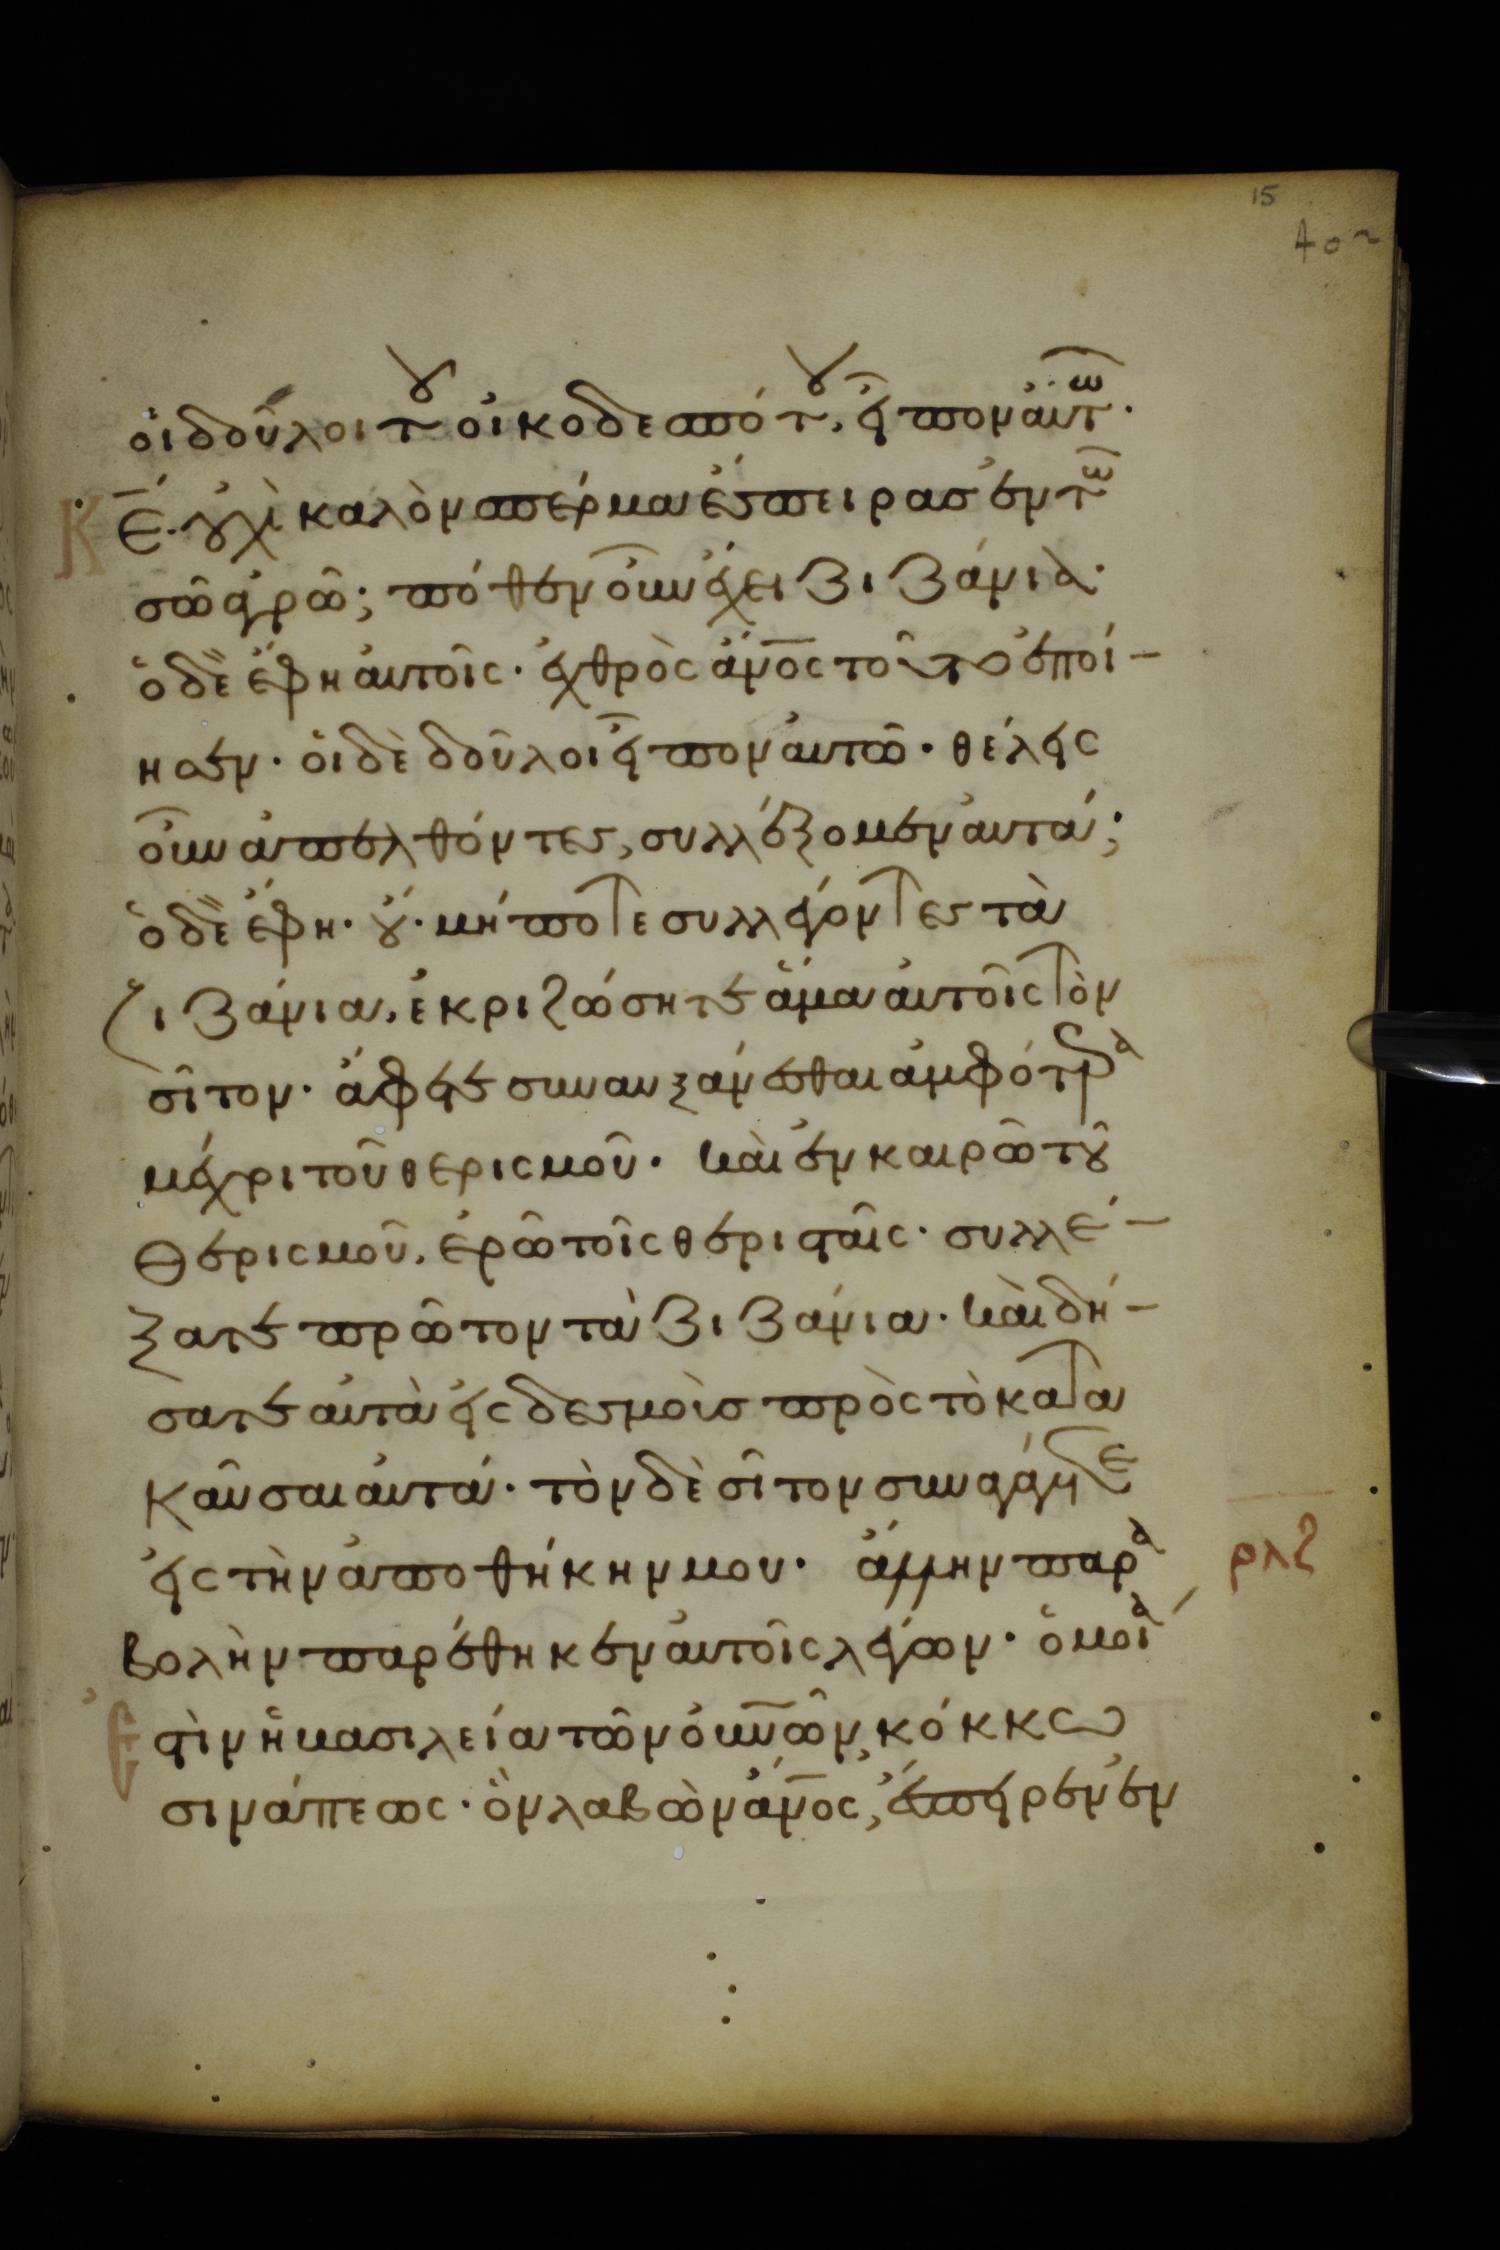 15
402
οἱ δοῦλοι τοῦ οἰκοδεσπότου, εἶπον αὐτῶ·
Κ̅Ε̅· οὐχὶ καλὸν σπέρμα ἔσπειρας ἐν τῶ
σῶ ἀγρῶ; πόθεν οὖν ἔχει ζιζάνια·
ὁ δὲ ἔφη αὐτοῖς· ἐχθρὸς ἄν̅ο̅ς τοῦτο ἐποί-
ησεν· οἱ δὲ δοῦλοι εἶπον αὐτῶ· θέλεις
οὖν ἀπελθόντες, συλλέξομεν αὐτά;
ὁ δὲ ἔφη· οὔ· μήποτε συλλέγοντες τὰ
ζιζάνια, ἐκριζώσητε ἅμα αὐτοῖς τὸν
σῖτον· ἄφετε συναυξάνεσθαι ἀμφότερα
μέχρι τοῦ θερισμοῦ· καὶ ἐν καιρῶ τοῦ
θερισμοῦ, ἐρῶ τοῖς θερισταῖς· συλλέ-
ξατε πρῶτον τὰ ζιζάνια· καὶ δή-
σατε αὐτὰ εἰς δεσμοὺς πρὸς τὸ κατα
καῦσαι αὐτά· τὸν δὲ σῖτον συναγάγετε
εἰς τὴν ἀποθήκην μου· ἄλλην παρα
ρλζ
βολὴν παρέθηκεν αὐτοῖς λέγων· ὁμοία
ἐστὶν ἡ βασιλεία τῶν οὐν̅ῶν, κόκκω
σινάπεως· ὃν λαβὼν ἄν̅ο̅ς, ἔσπειρεν ἐν